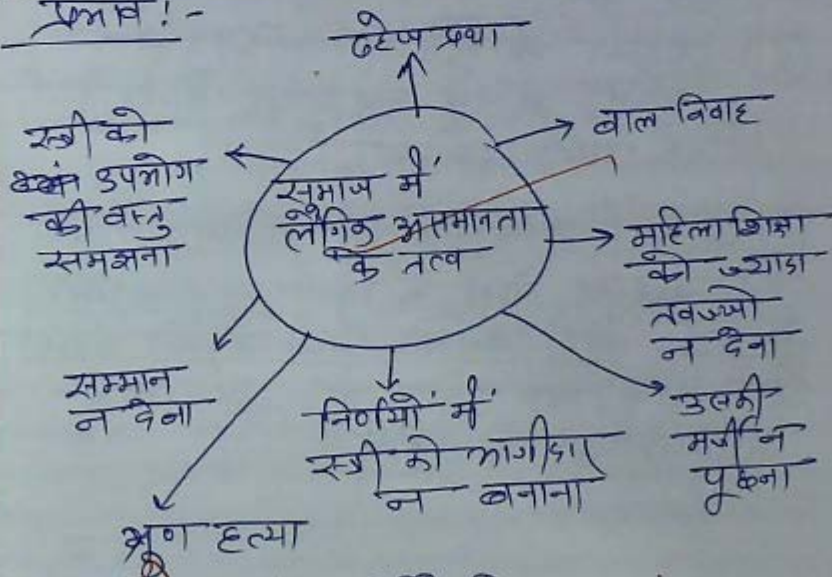 प्रभाव :-
दहेज प्रथा
बाल विवाह
स्त्री को
उपभोग
की वस्तु
समझना
समाज में
लैंगिक असमानता
के तत्व
महिला शिक्षा
को ज्यादा
तवज्जो
न देना
सम्मान
न देना
निर्णयों में
स्त्री को भागीदार
न बनाना
उसकी
मर्जी न
पूछना
भ्रूण हत्या